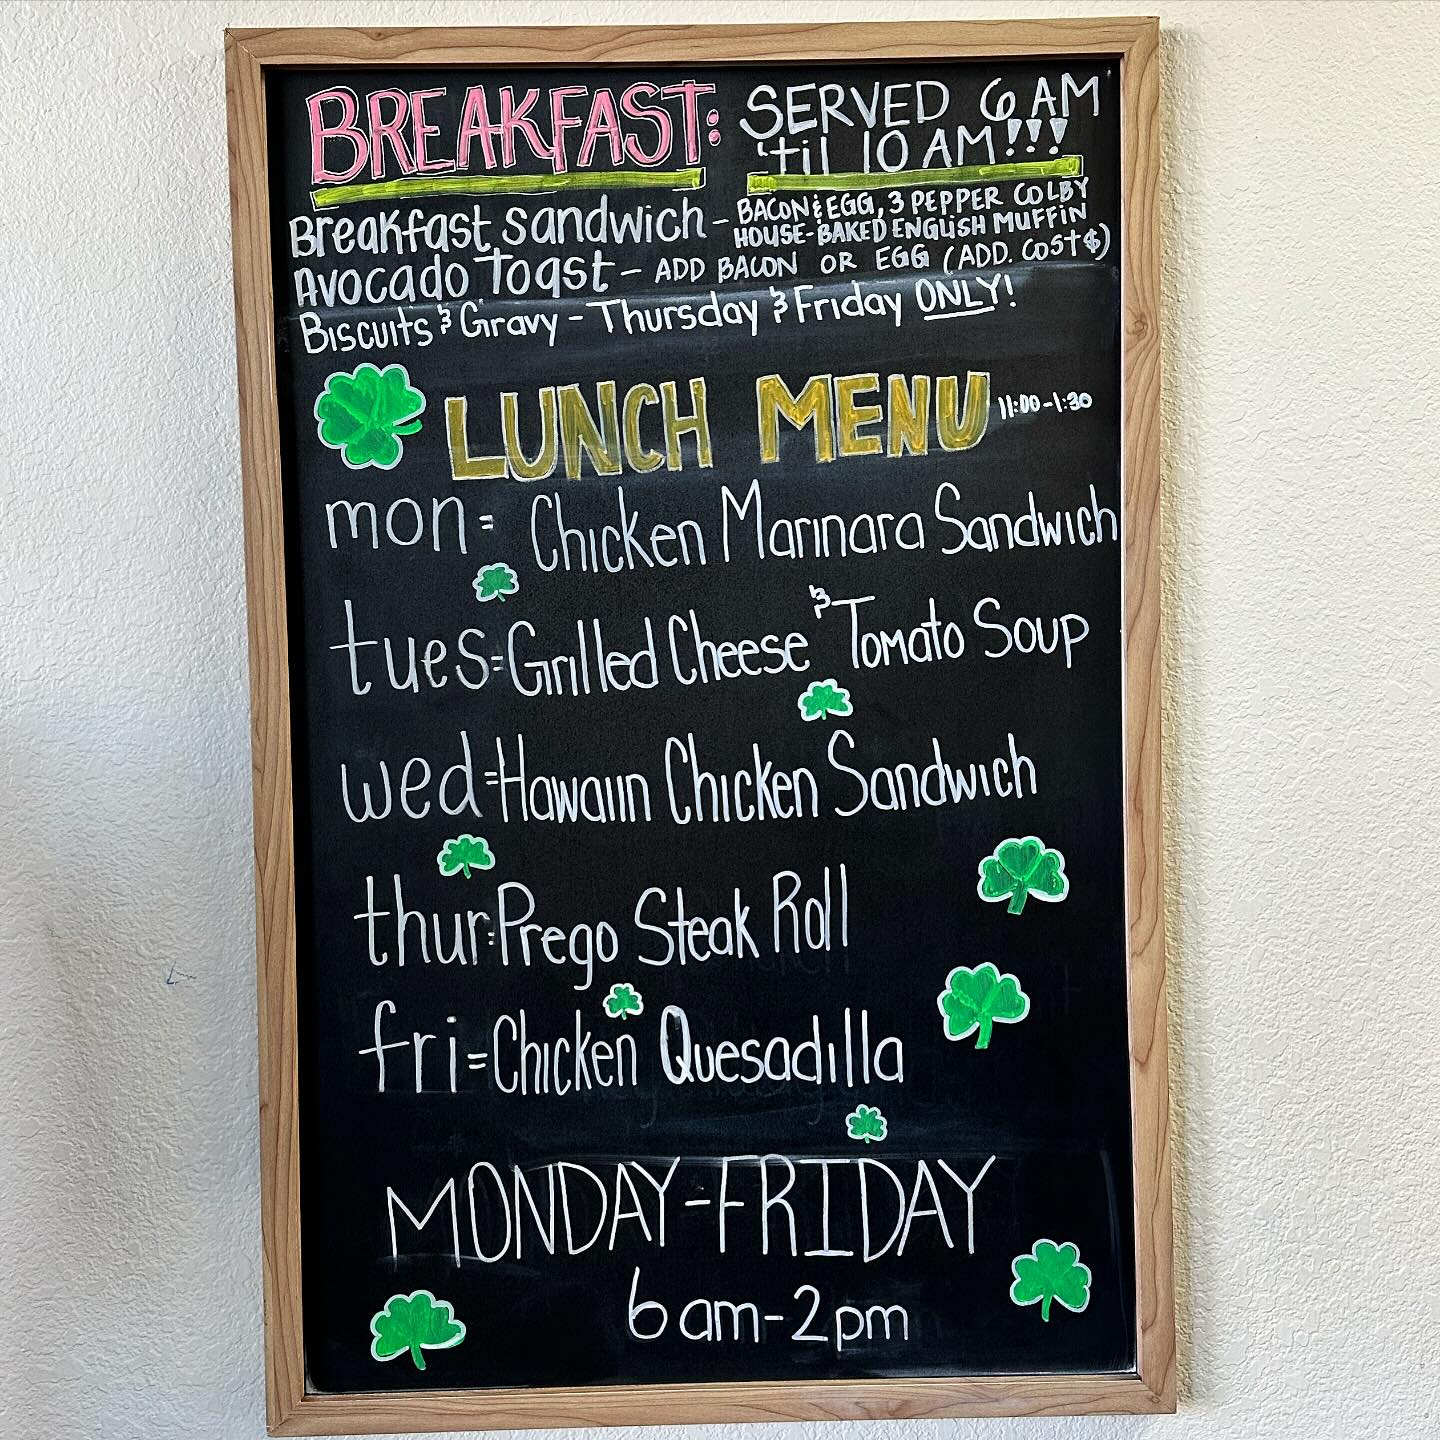 BREAKFAST: SERVED 6 AM
'til 10 AM!!!
Breakfast Sandwich - BACON & EGG, 3 PEPPER COLBY
HOUSE-BAKED ENGLISH MUFFIN
Avocado Toast - ADD BACON OR EGG (ADD. COST $)
Biscuits & Gravy - Thursday & Friday ONLY!
LUNCH MENU 11:00-1:30
mon= Chicken Marinara Sandwich
tues= Grilled Cheese & Tomato Soup
wed= Hawaiin Chicken Sandwich
thur= Prego Steak Roll
fri= Chicken Quesadilla
MONDAY-FRIDAY
6am-2pm